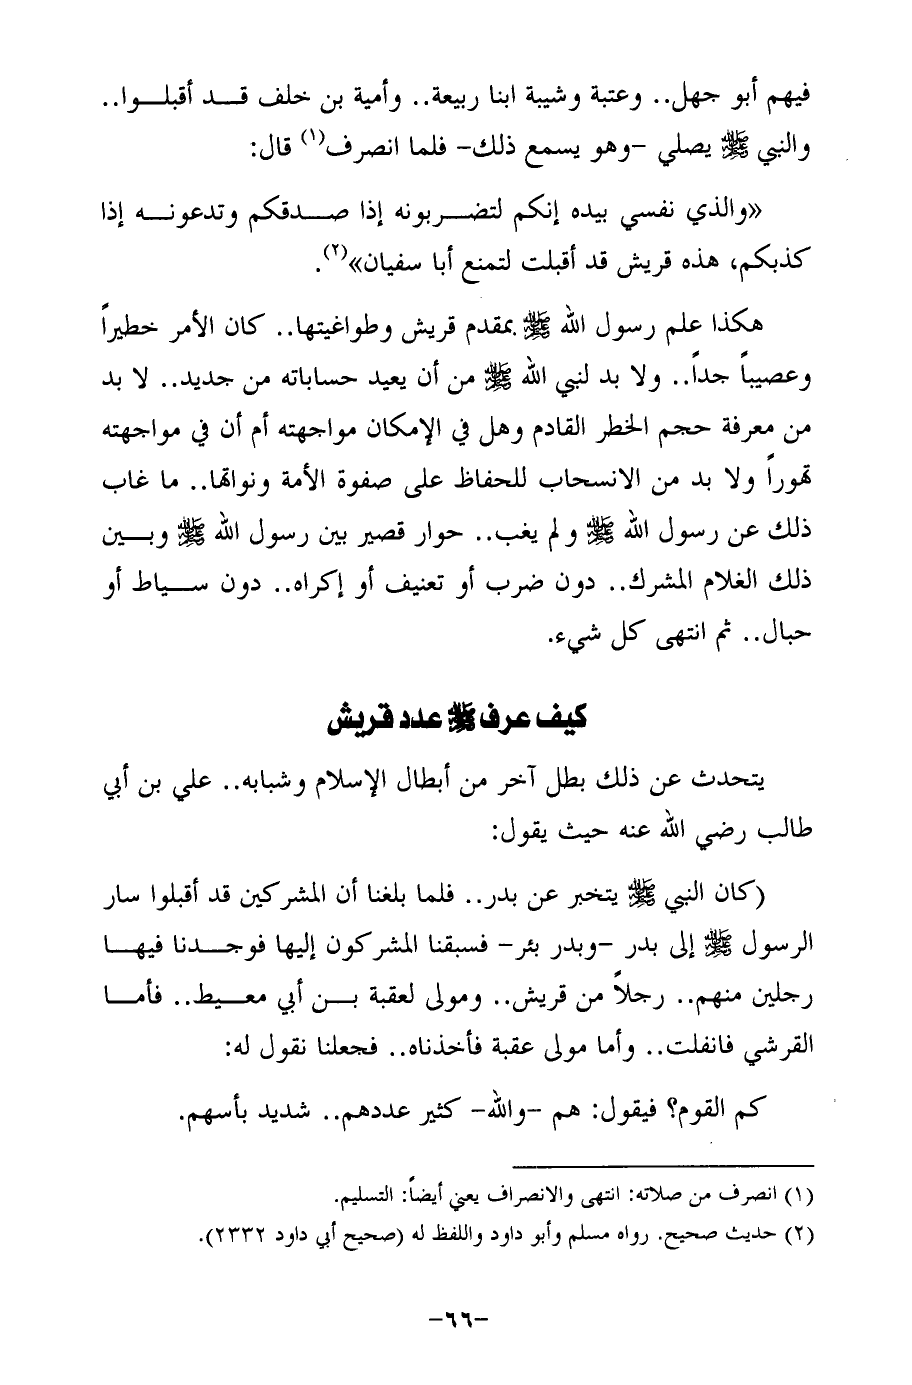 فيهم أبو جهل.. وعتبة وشيبة ابنا ربيعة.. وأمية بن خلف قد أقبلوا..
والنبي ﷺ يصلي -وهو يسمع ذلك- فلما انصرف(١) قال:
«والذي نفسي بيده إنكم لتضربونه إذا صدقكم وتدعونه إذا
كذبكم، هذه قريش قد أقبلت لتمنع أبا سفيان»(٢).
هكذا علم رسول الله ﷺ بمقدم قريش وطواغيتها.. كان الأمر خطيراً
وعصيباً جداً.. ولا بد لنبي الله ﷺ من أن يعيد حساباته من جديد.. لا بد
من معرفة حجم الخطر القادم وهل في الإمكان مواجهته أم أن في مواجهته
تهوراً ولا بد من الانسحاب للحفاظ على صفوة الأمة ونواتها.. ما غاب
ذلك عن رسول الله ﷺ ولم يغب.. حوار قصير بين رسول الله ﷺ وبين
ذلك الغلام المشرك.. دون ضرب أو تعنيف أو إكراه.. دون سياط أو
حبال.. ثم انتهى كل شيء.
كيف عرف ﷺ عدد قريش
يتحدث عن ذلك بطل آخر من أبطال الإسلام وشبابه.. علي بن أبي
طالب رضي الله عنه حيث يقول:
(كان النبي ﷺ يتخبر عن بدر.. فلما بلغنا أن المشركين قد أقبلوا سار
الرسول ﷺ إلى بدر -وبدر بئر- فسبقنا المشركون إليها فوجدنا فيها
رجلين منهم.. رجلاً من قريش.. ومولى لعقبة بن أبي معيط.. فأما
القرشي فانفلت.. وأما مولى عقبة فأخذناه.. فجعلنا نقول له:
كم القوم؟ فيقول: هم -والله- كثير عددهم.. شديد بأسهم.
(١) انصرف من صلاته: انتهى والانصراف يعني أيضاً: التسليم.
(٢) حديث صحيح. رواه مسلم وأبو داود واللفظ له (صحيح أبي داود ٢٣٣٢).
-٦٦-